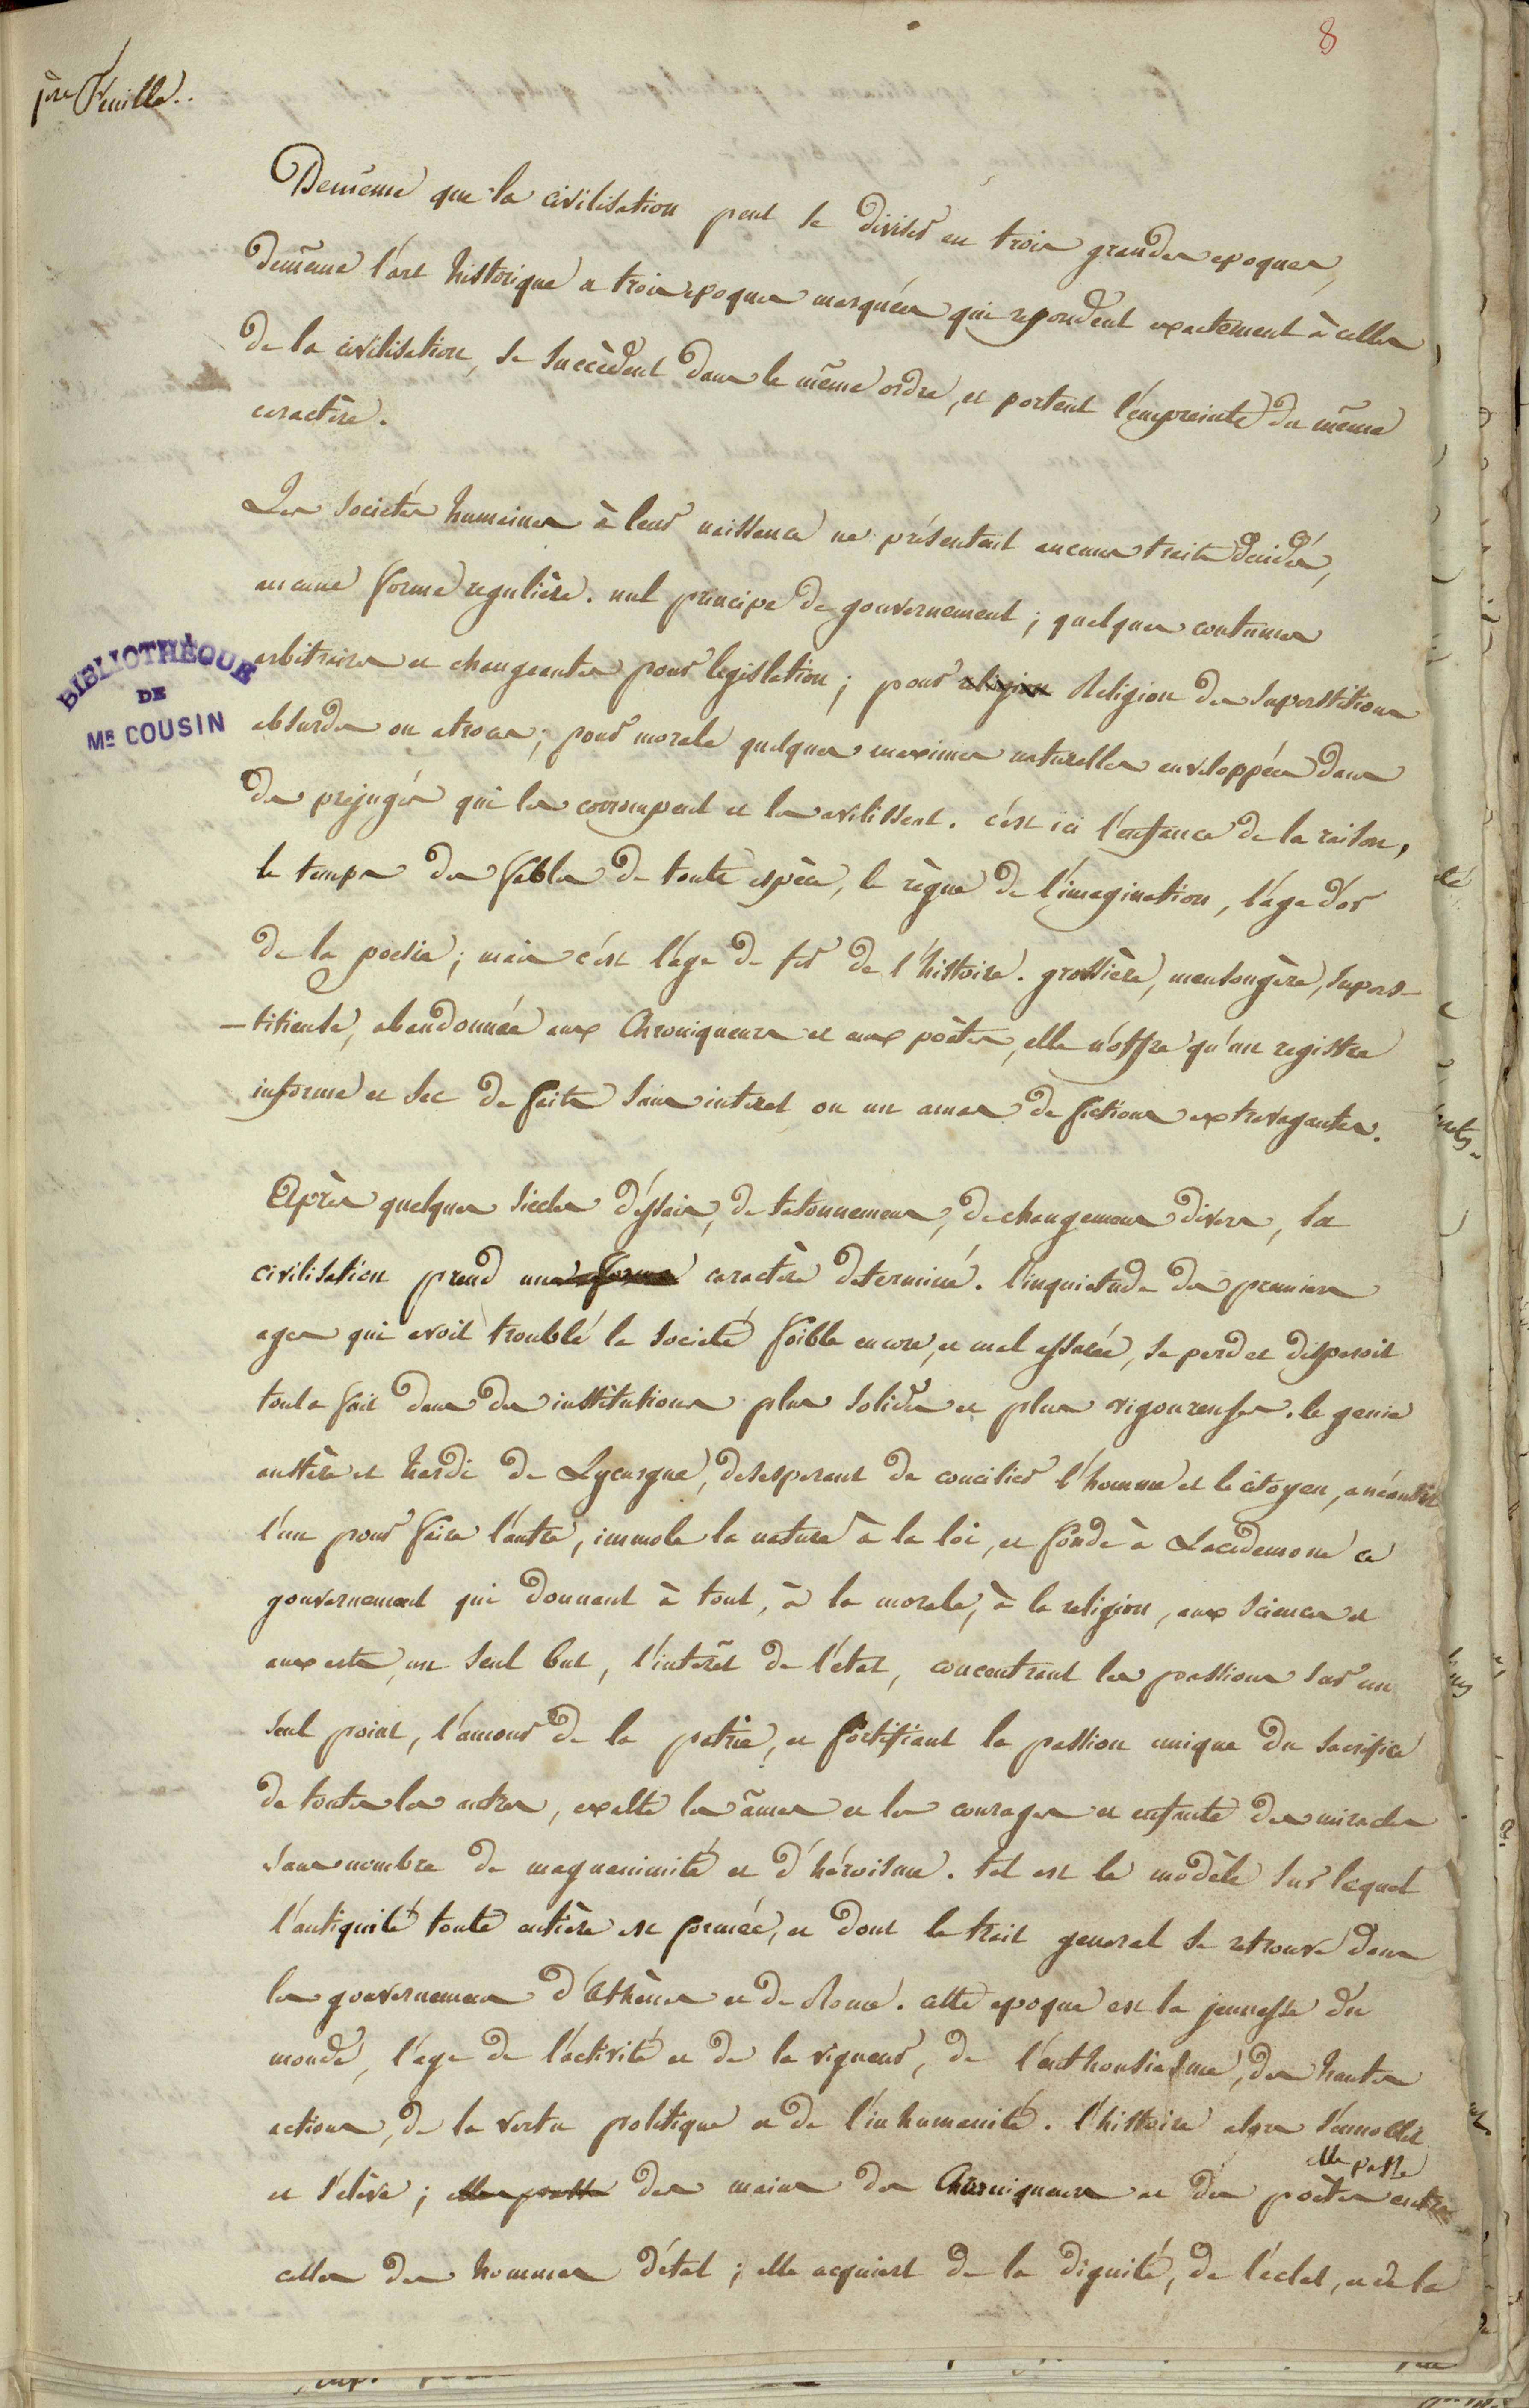 8
1ere feuille..
Demême que la civilisation peut se diviser en trois grandes epoques,
demême l'art historique a trois epoques marquées qui repondent exactement à celles
de la civilisation, se succèdent dans le même ordre, et portent l'empreinte du même
caractère.
Les societés humaines à leur naissance ne présentent aucuns traits decidés,
aucune forme regulière. nul principe de gouvernement ; quelques coutumes
arbitraires et changeantes pour legislation ; pour religion Religion des superstitions
absurdes ou atroces ; pour morale quelques maximes naturelles enveloppées dans
des prejugés qui les corrompent et les avilissent. c'est ici l'enfance de la raison,
le temps des fables de toute espèce, le règne de l'imagination, l'age d'or
de la poesie ; mais c'est l'age de fer de l'histoire. grossière, mensongère, supers-
-titieuse, abandonnée aux Chroniqueurs et aux poètes, elle n'offre qu'un registre
informe et sec de faits sans interet ou un amas de fictions extravagantes.
Après quelques siecles d'essais, de tatonnemens, de changemens divers, la
civilisation prend une forme caractère determiné. l'inquietude des premiers
ages qui avoit troublé la societé foible encore, et mal assurée, se perd et disparoit
tout a fait dans des institutions plus solides et plus vigoureuses. le genie
austère et hardi de Lycurgue, desesperant de concilier l'homme et le citoyen, anéantit
l'un pour faire l'autre, immole la nature à la loi, et fonde à Lacedemone ce
gouvernement qui donnant à tout, à la morale, à la religion, aux sciences et
aux arts, un seul but, l'intérêt de l'état, concentrant les passions sur un
seul point, l'amour de la patrie, et fortifiant la passion unique du sacrifice
de toutes les autres, exalte les âmes et les courages et enfante des miracles
sans nombre de magnanimité et d'héroisme. tel est le modèle sur lequel
l'antiquité toute entière est formée, et dont le trait general se retrouve dans
les gouvernemens d'Athènes et de Rome. cette epoque est la jeunesse du
monde, l'age de l'activité et de la vigueur, de l'enthousiasme, des hautes
actions, de la vertu politique et de l'inhumanité. l'histoire alors s'ennoblit
elle passe
et s'élève ; elle passe des mains des Chroniqueurs et des poètes entre
celles des hommes d'état ; elle acquiert de la dignité, de l'éclat, et de la
BIBLIOTHÈQUE
DE
MR COUSIN